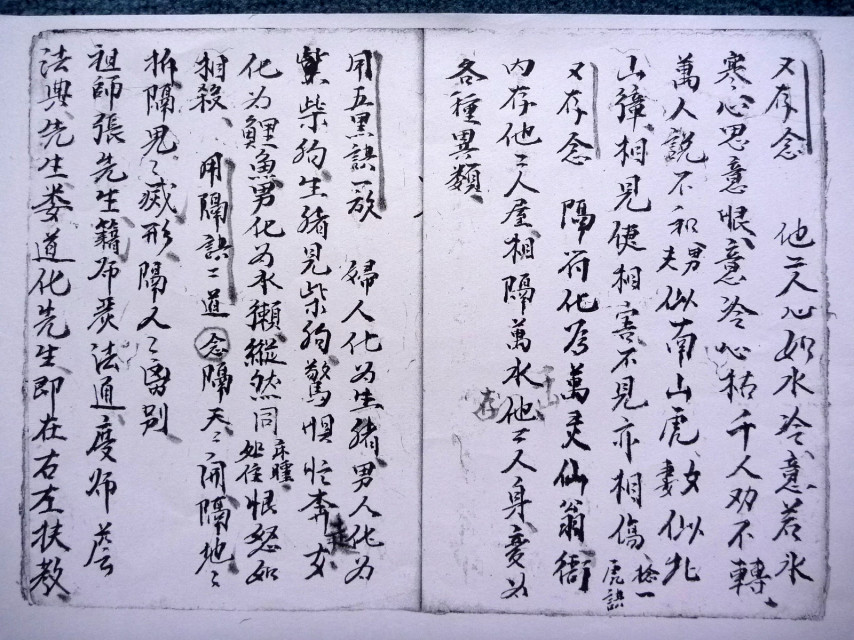 又存念 他二人心如水冷意若氷
寒心思意恨意冷心枯千人劝不轉
萬人說不和夫男似南山虎妻女似北
山獐相見便相害不見亦相傷 捻一虎訣
又存念 隔符化为萬灵仙翁銜
内存他二人屋相隔萬水千山他二人身变为
各種異類
用五黑訣一放 婦人化为生猪男人化为
紫柴狗生猪見柴狗驚惧忙奔走女
化为鯉魚男化为水獺縱然同床睡如住恨怒如
相殺 用隔訣二道 念隔天〻開隔地〻
拆隔鬼〻滅形隔人〻离别
祖師張先生籍师炁法通度师
法興先生娄道化先生即在右左扶教